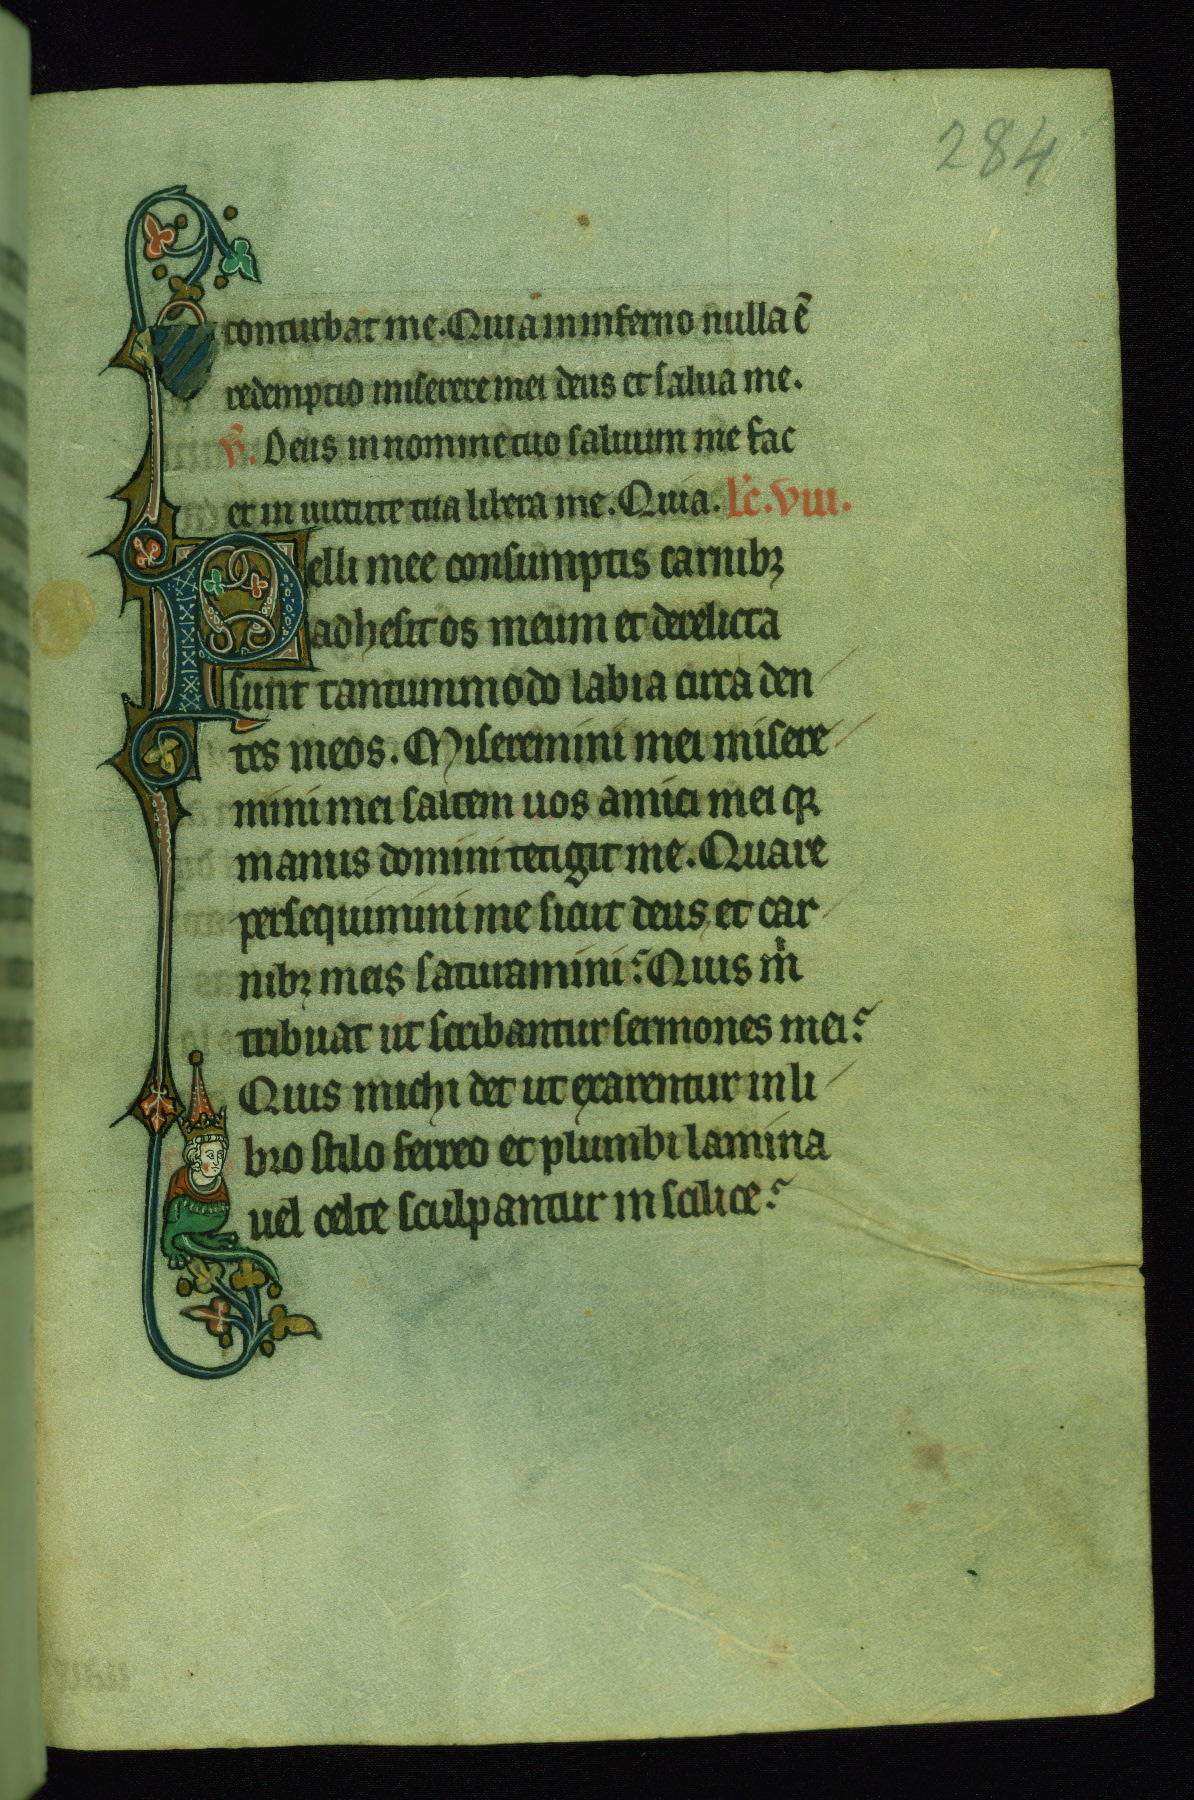 284
conturbat me. Quia in inferno nulla ē
redemptio miserere mei deus et salua me.
v̄. Deus in nomine tuo saluum me fac
et in uirtute tua libera me. Quia. lc̄. viii.
Pelli mee consumptis carnibꝫ
adhesit os meum et derelicta
sunt tantummodo labia circa den
tes meos. Miseremini mei misere
mini mei saltem uos amici mei qꝛ
manus domini tetigit me. Quare
persequimini me sicut deus et car
nibꝫ meis saturamini? Quis m̄
tribuat ut scribantur sermones mei?
Quis michi det ut exarentur in li
bro stilo ferreo et plumbi lamina
uel celte sculpantur in scilice?